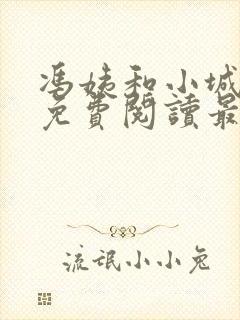 馮姨和小城
免費閱讀最
流氓小小兔